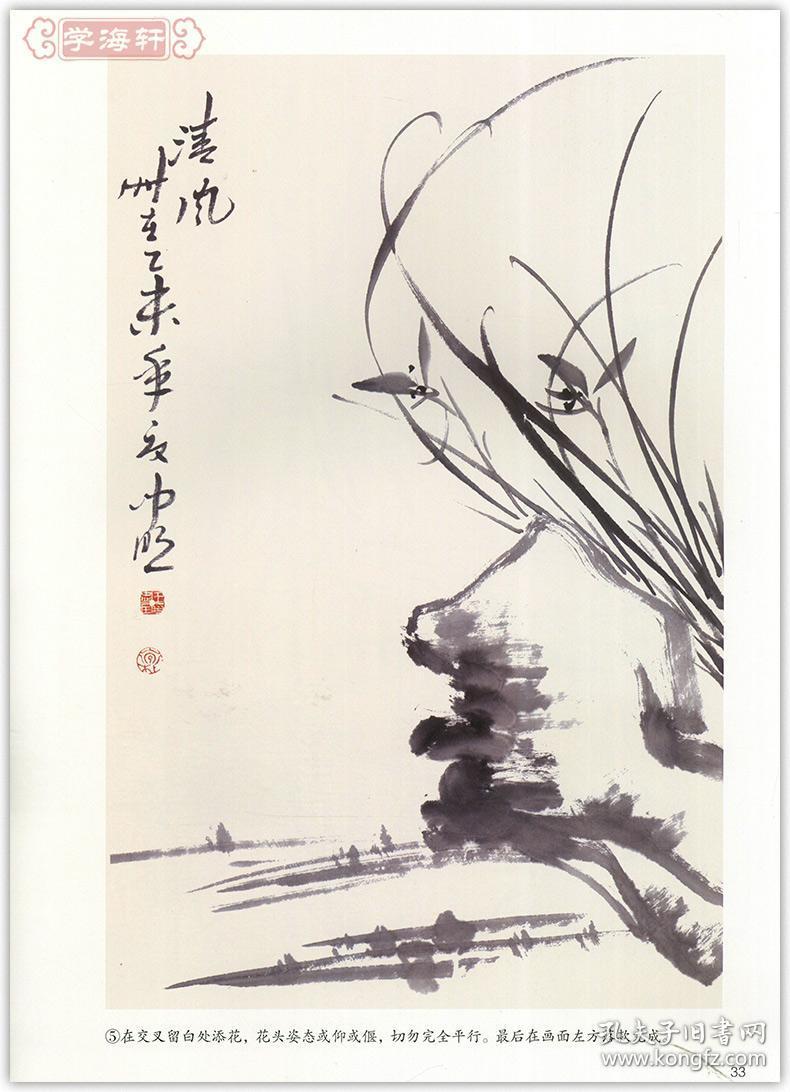 学海轩
清风
岁在乙未年夏
⑤在交叉留白处添花，花头姿态或仰或偃，切勿完全平行。最后在画面左方落款完成。
孔夫子旧书网
www.kongfz.com
33